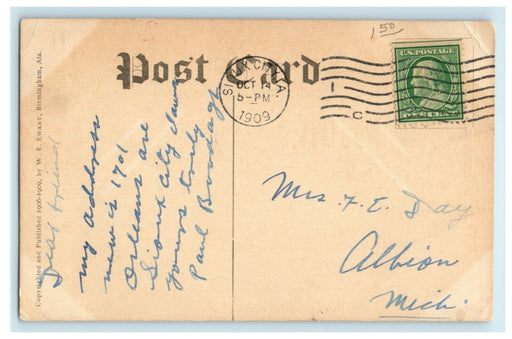 1 50
U.S. POSTAGE
Post Card
SIOUX CITY, IA.
OCT 14
5-PM
1909
1
C
ONE CENT
Copyrighted and Published 1908-1909, by W. E. Ewart, Birmingham, Ala.
Dear friend
my address
now is 1701
Orleans ave
Sioux city Iowa
yours truly
Paul
Mrs. F. E. Day
Albion
Mich.